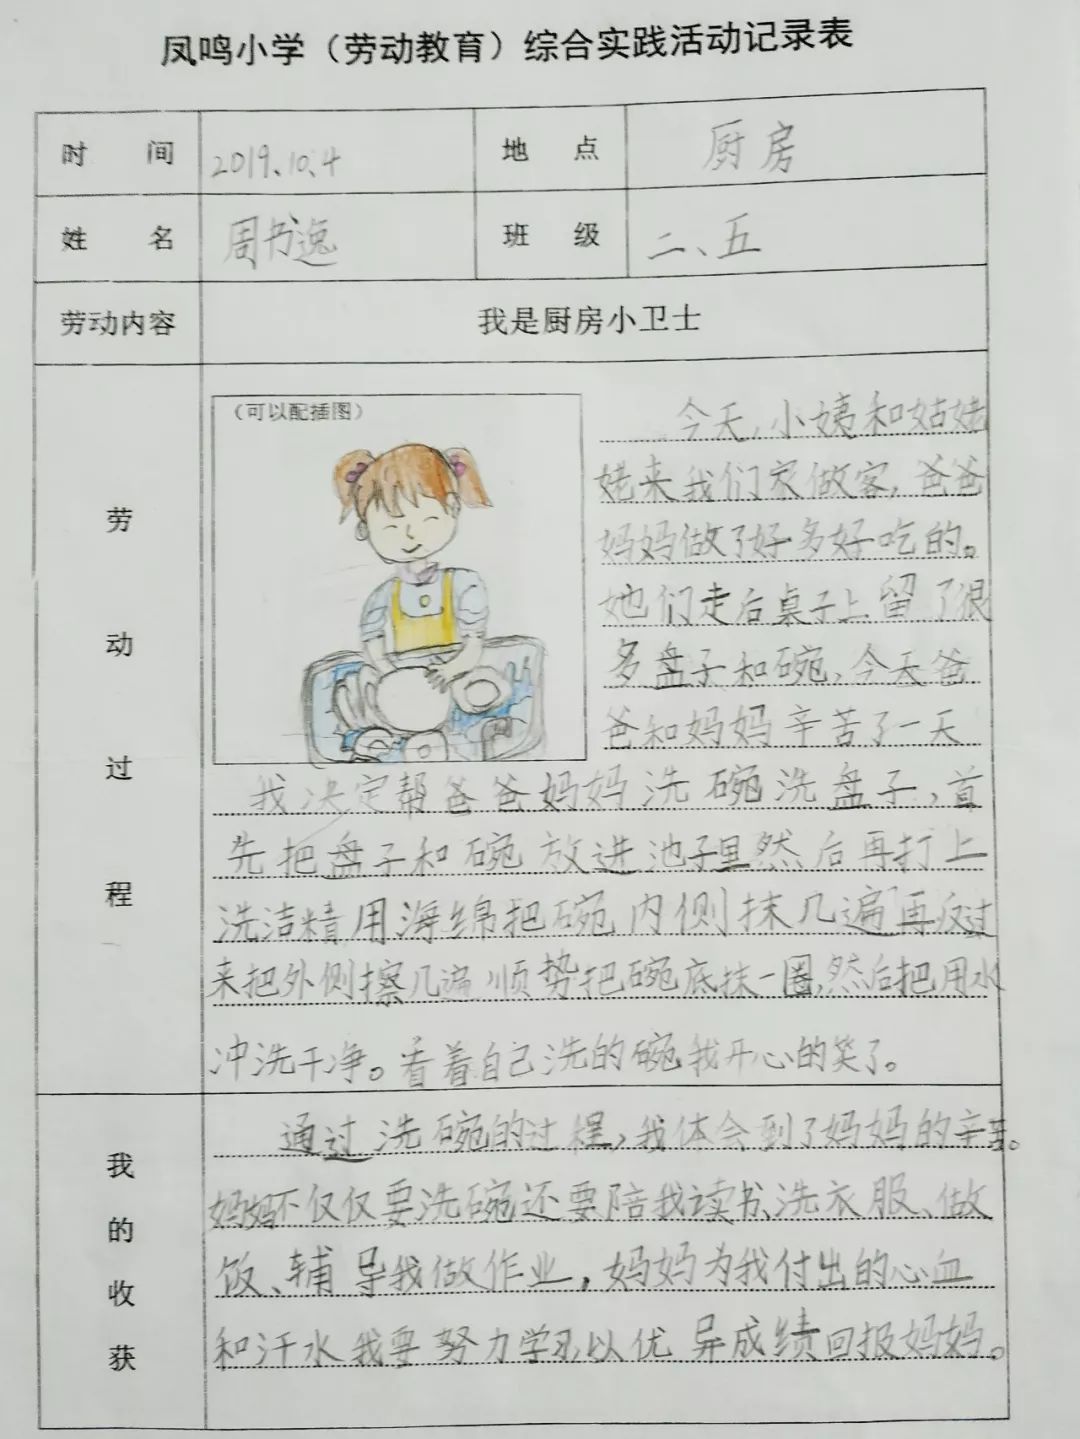 凤鸣小学（劳动教育）综合实践活动记录表
时 间 2019.10.4 地 点 厨房
姓 名 周书逸 班 级 二、五
劳动内容 我是厨房小卫士
劳动过程
（可以配插图）
今天,小姨和姑姥
姥来我们家做客,爸爸
妈妈做了好多好吃的。
她们走后桌子上留了很
多盘子和碗,今天爸
爸和妈妈辛苦了一天
我决定帮爸爸妈妈洗碗洗盘子,首
先把盘子和碗放进池子里然后再打上
洗洁精用海绵把碗内侧抹几遍再反过
来把外侧擦几遍顺势把碗底抹一圈,然后把用水
冲洗干净。看着自己洗的碗我开心的笑了。
我的收获
通过洗碗的过程,我体会到了妈妈的辛苦。
妈妈不仅仅要洗碗还要陪我读书、洗衣服、做
饭、辅导我做作业,妈妈为我付出的心血
和汗水我要努力学习以优异成绩回报妈妈。